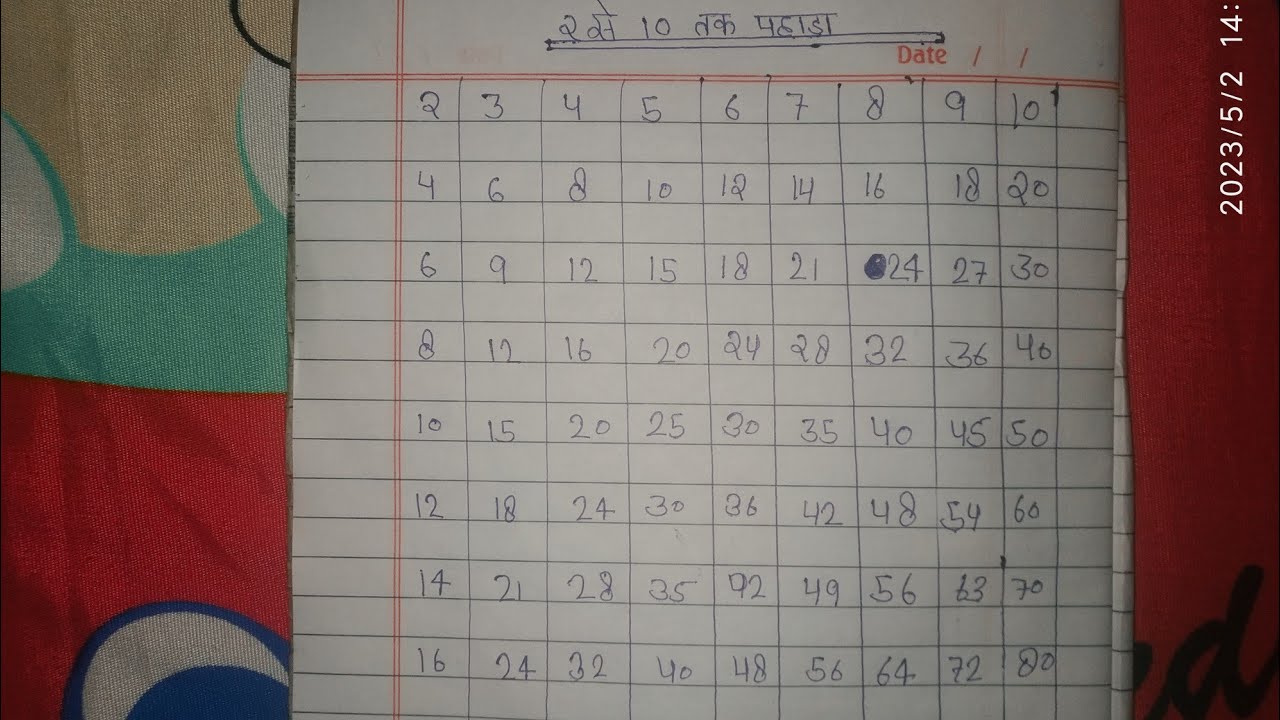 2 से 10 तक पहाडा
Date / /
2 3 4 5 6 7 8 9 10
4 6 8 10 12 14 16 18 20
6 9 12 15 18 21 24 27 30
8 12 16 20 24 28 32 36 40
10 15 20 25 30 35 40 45 50
12 18 24 30 36 42 48 54 60
14 21 28 35 42 49 56 63 70
16 24 32 40 48 56 64 72 80
2023/5/2 14: